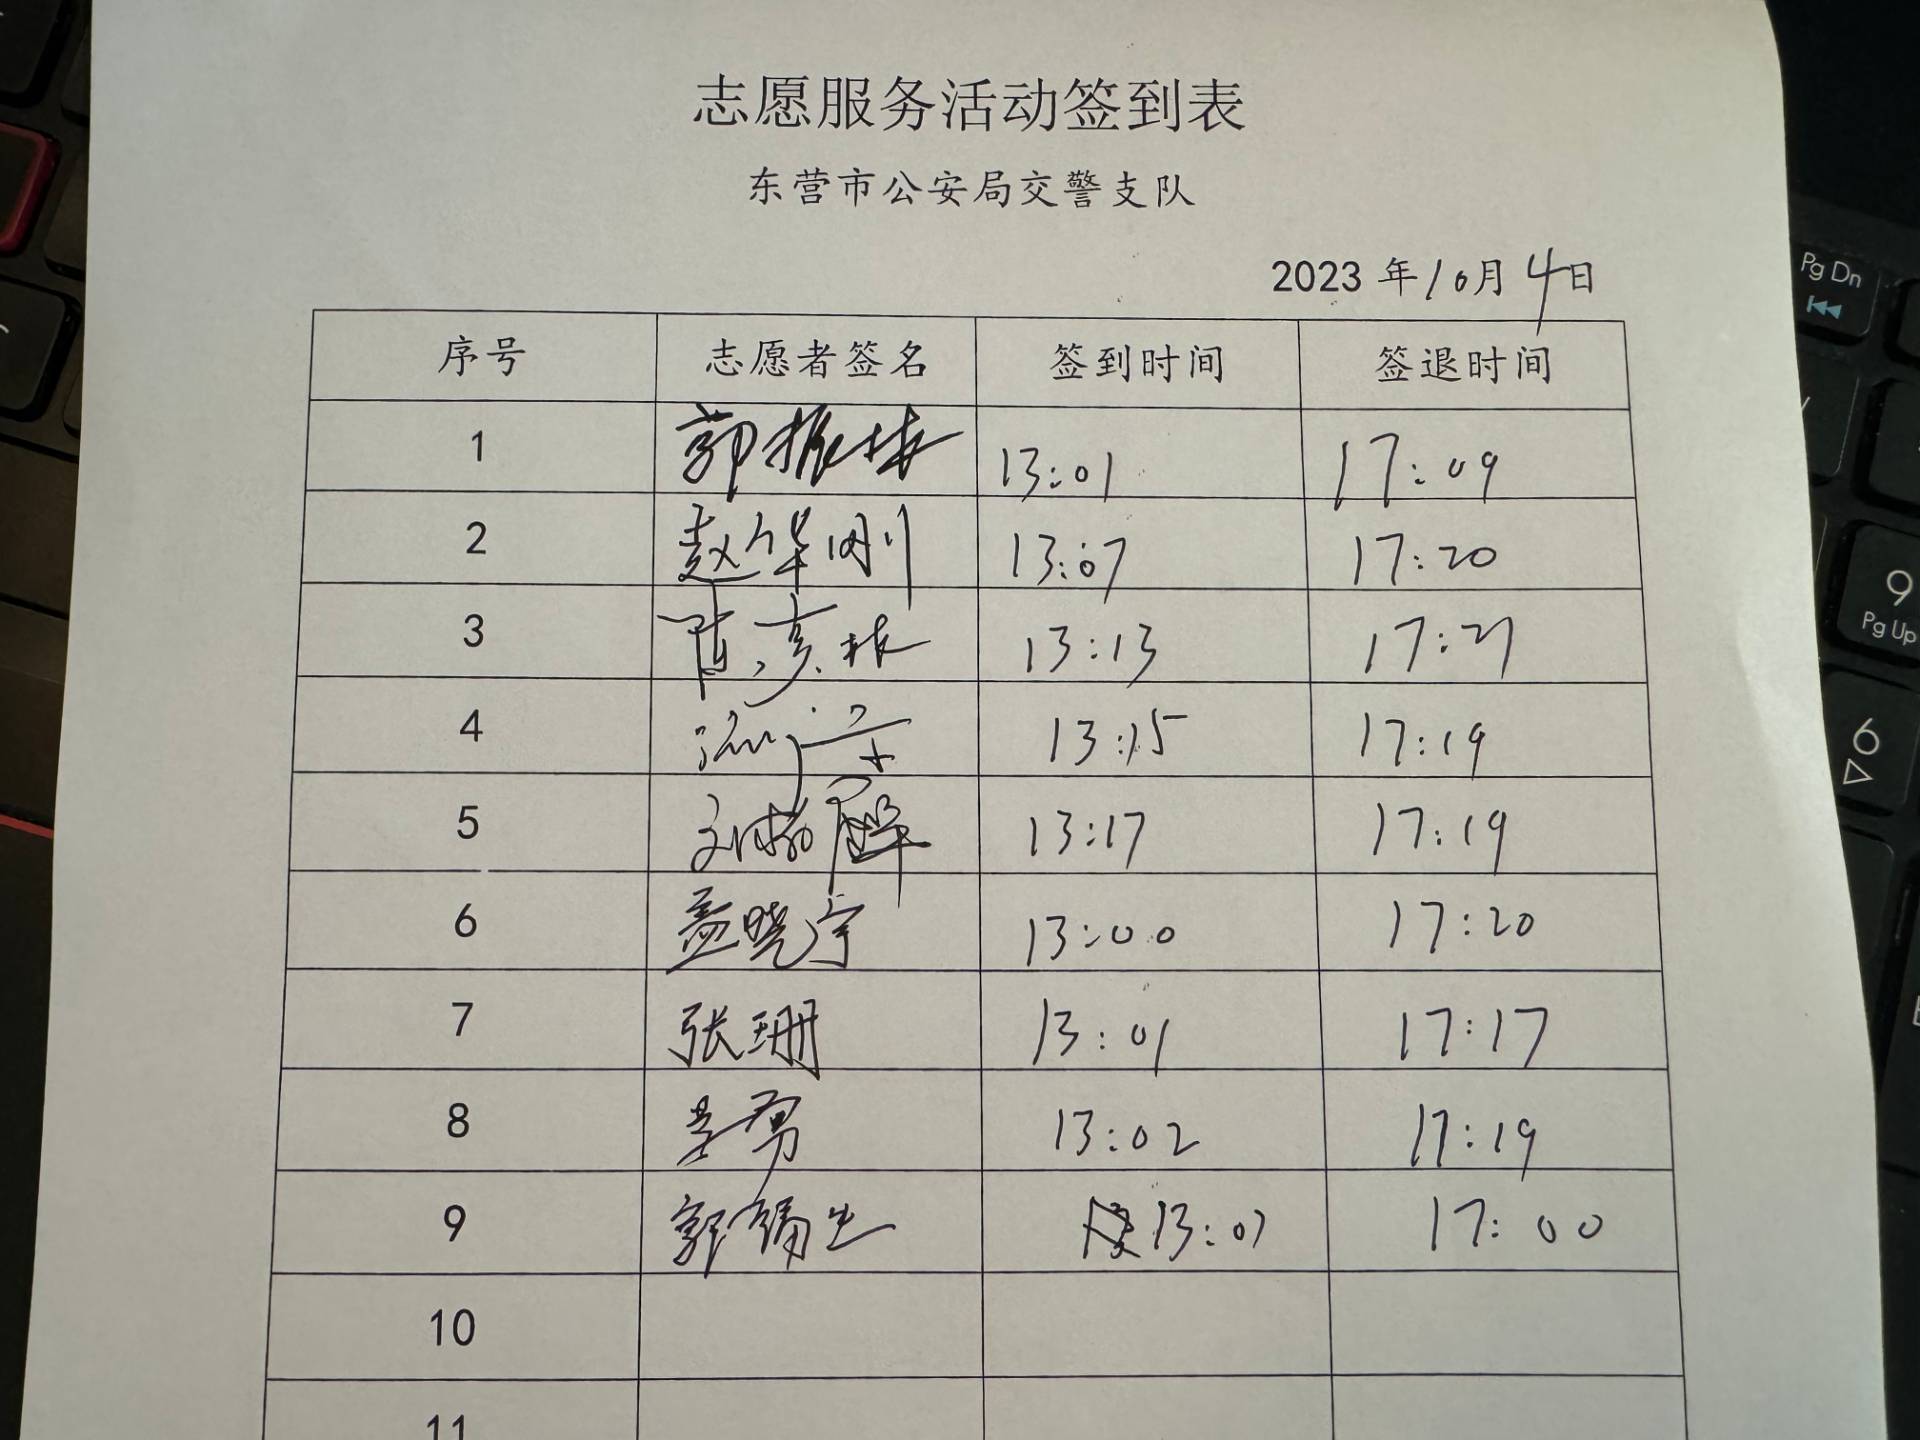 志愿服务活动签到表
东营市公安局交警支队
2023 年 10 月 4 日
序号 志愿者签名 签到时间 签退时间
1 郭振 13:01 17:09
2 赵华刚 13:07 17:20
3 陈彦林 13:13 17:21
4 13:15 17:19
5 刘 13:17 17:19
6 孟晓宇 13:00 17:20
7 张珊 13:01 17:17
8 勇 13:02 17:19
9 郭 13:07 17:00
10
11
Pg Dn
9
Pg Up
6